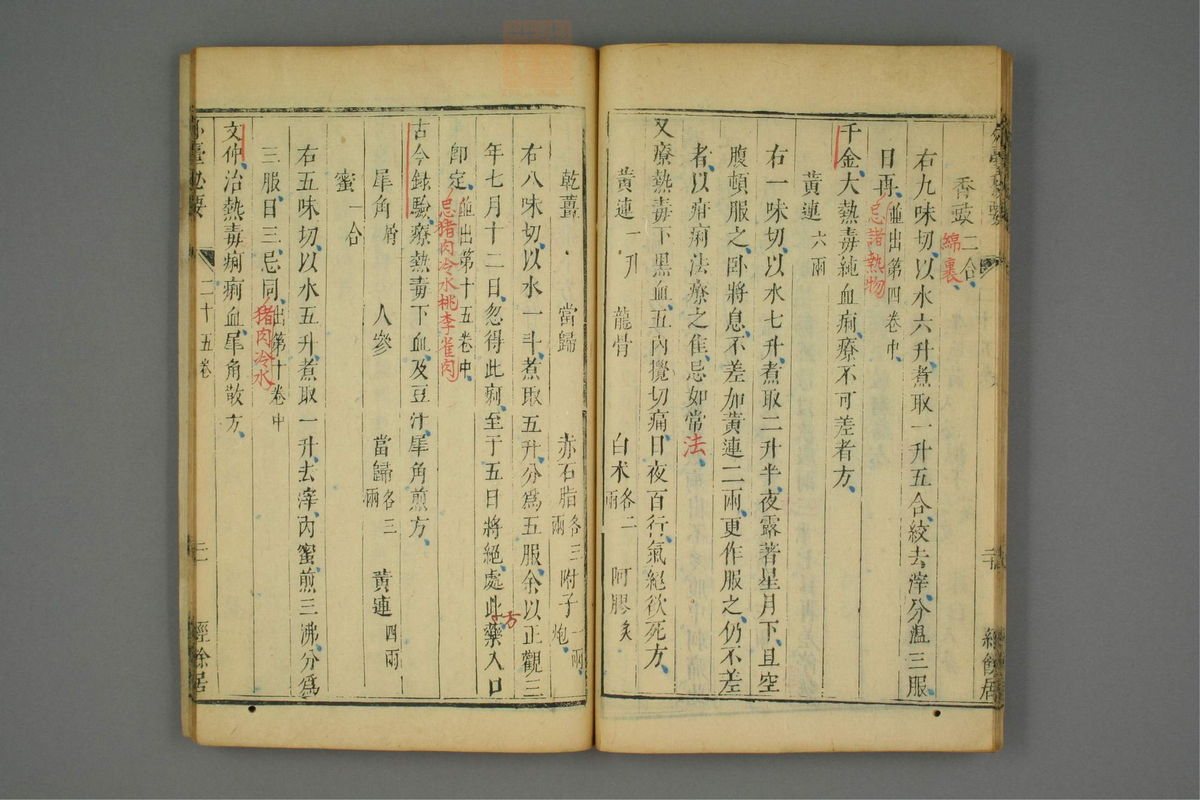 香豉二合綿裹
右九味切以水六升煮取一升五合絞去滓分溫三服
日再並出第四卷中忌諸熱物
千金大熱毒純血痢療不可差者方
黃連六兩
右一味切以水七升煮取二升半夜露著星月下旦空
腹頓服之臥將息不差加黃連二兩更作服之仍不差
者以疳痢法療之隹忌如常法
又療熱毒下黑血五內攪切痛日夜百行氣絕欲死方
黃連一升 龍骨 白朮各二兩 阿膠炙
乾薑 當歸 赤石脂各三兩 附子一兩炮
右八味切以水一斗煮取五升分爲五服余以正觀三
年七月十二日忽得此痢至于五日將絕處此方藥入口
卽定並出第十五卷中忌猪肉冷水桃李雀肉
古今録驗療熱毒下血及豆汁犀角煎方
犀角屑 人參 當歸各三兩 黃連四兩
蜜一合
右五味切以水五升煮取一升去滓內蜜煎三沸分爲
三服日三忌同出第十卷中猪肉冷水
文仲治熱毒痢痢血犀角散方
外臺祕要 二十五卷 經餘居